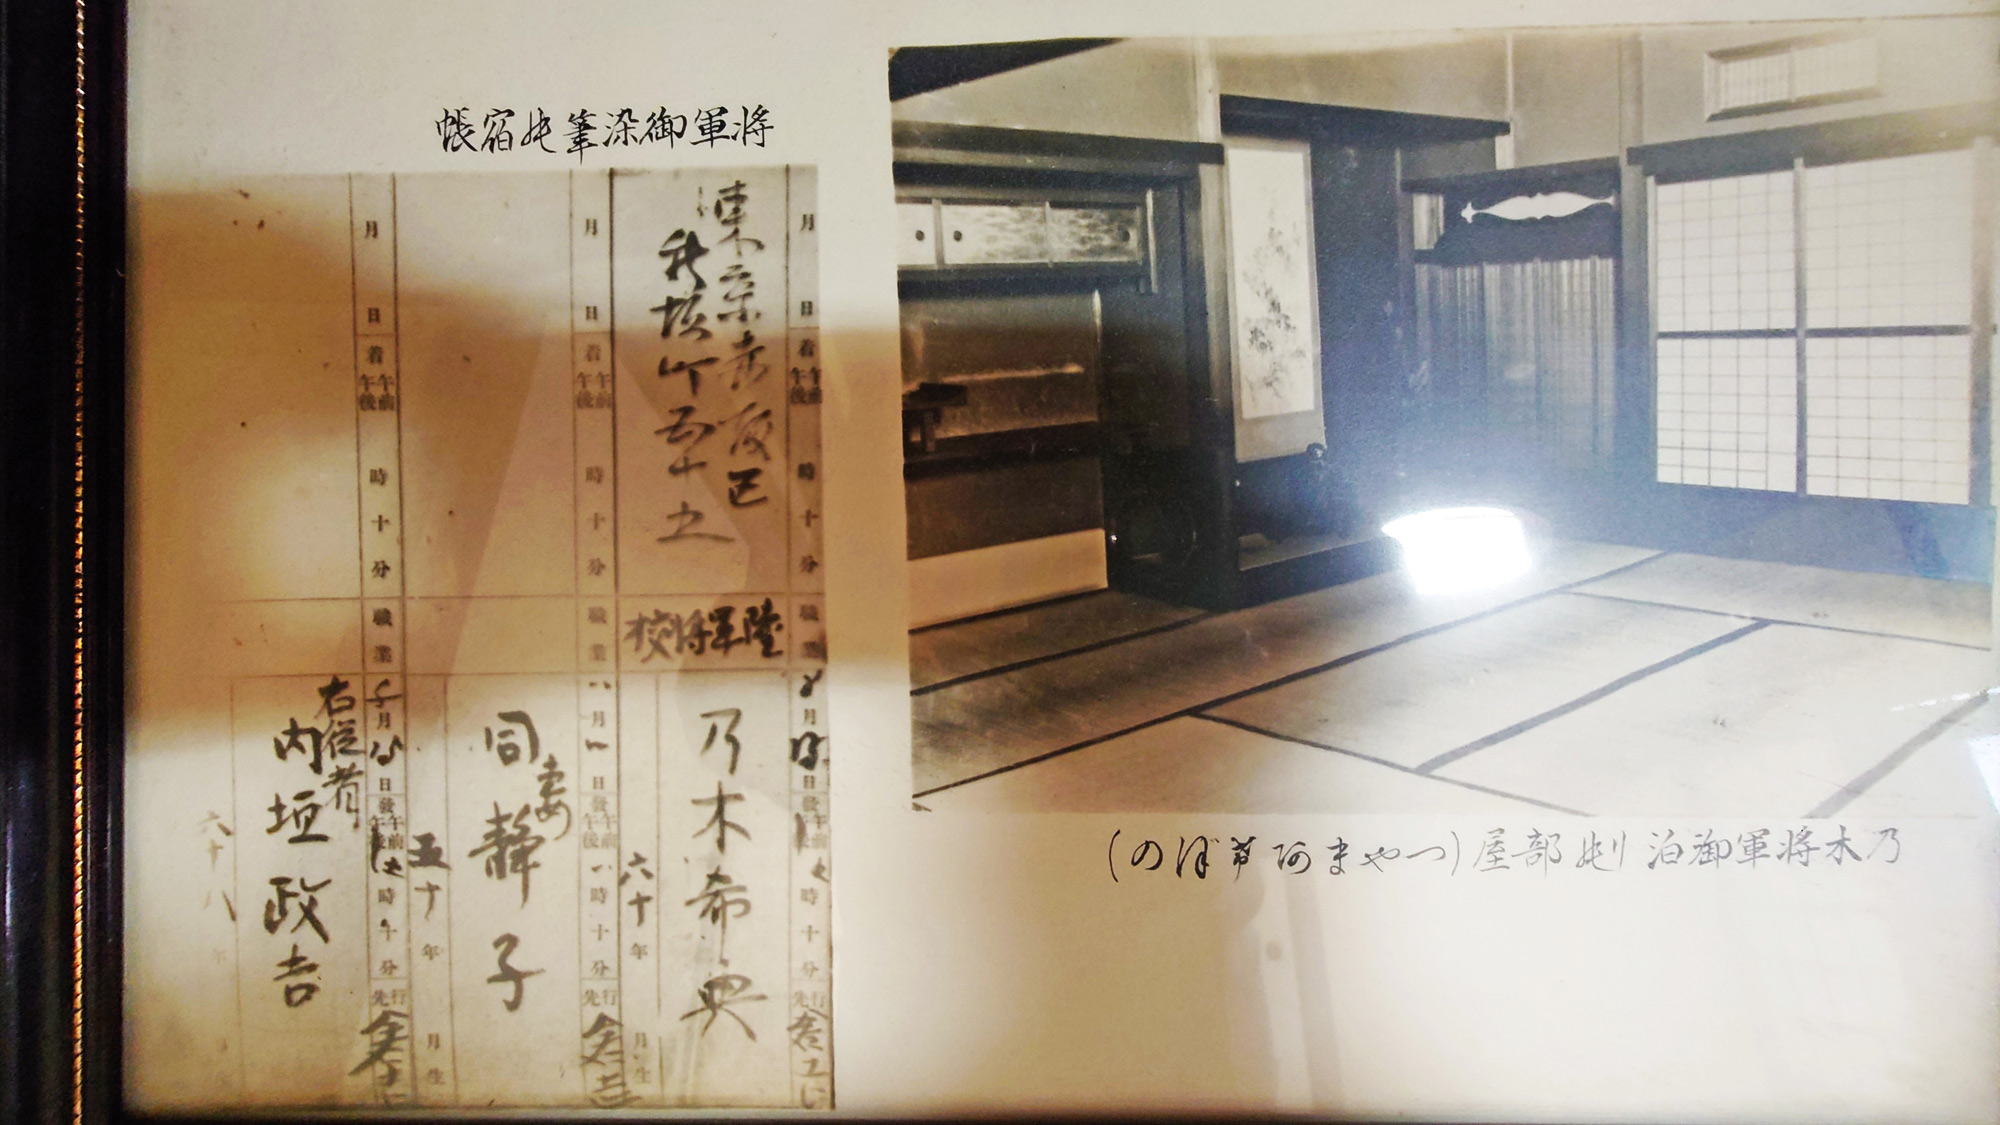 將軍御染筆の宿帳
月 日 着 午前 午後 時 十 分 職業 月 日 發 午前 午後 時 十 分 行先
東京赤坂区
新坂町五十五
陸軍将校
乃木希典
六十年 月 生
月 日 着 午前 午後 時 十 分 職業 月 日 發 午前 午後 時 十 分 行先
同妻 静子
五十年 月 生
月 日 着 午前 午後 時 十 分 職業 月 日 發 午前 午後 時 十 分 行先
右従者
内垣政吉
六十八年
乃木将軍御泊りの部屋